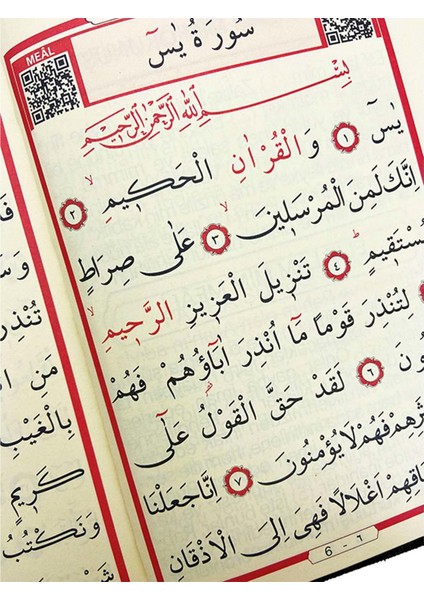 MEÂL
سُورَةُ يٰسٓ
بِسْمِ اللّٰهِ الرَّحْمٰنِ الرَّحِيمِ
يٰسٓ ١ وَالْقُرْاٰنِ الْحَكِيمِ ٢
اِنَّكَ لَمِنَ الْمُرْسَلِينَ ٣ عَلٰى صِرَاطٍ
مُسْتَقِيمٍ ٤ تَنْزِيلَ الْعَزِيزِ الرَّحِيمِ
لِتُنْذِرَ قَوْمًا مَٓا اُنْذِرَ اٰبَٓاؤُهُمْ فَهُمْ
ونَ ٦ لَقَدْ حَقَّ الْقَوْلُ عَلٰٓى
ثَرِهِمْ فَهُمْ لَا يُؤْمِنُونَ ٧ اِنَّا جَعَلْنَا
اقِهِمْ اَغْلَالًا فَهِىَ اِلَى الْاَذْقَانِ
6 - ٦
تُنْذِرْ
بِالْغَيْبِ
كَرِيمٍ
وَنَكْتُبُ